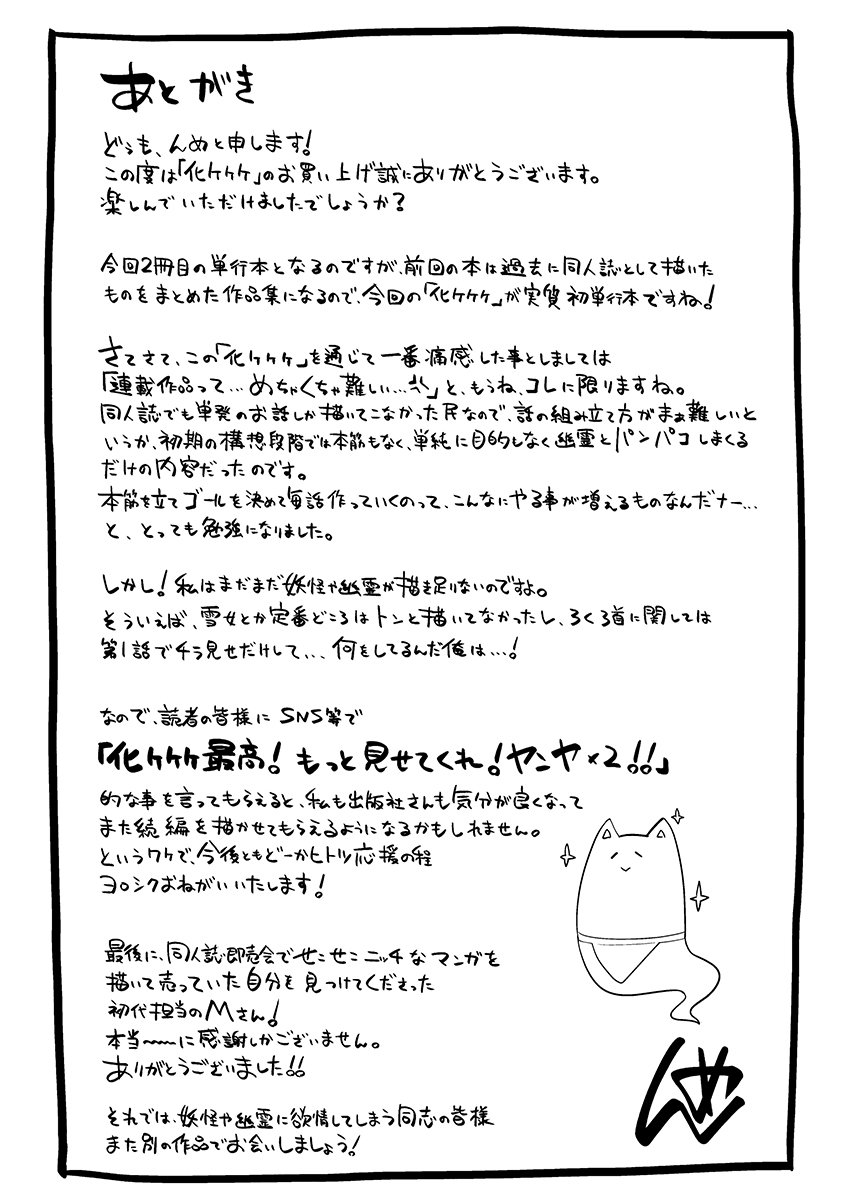 あとがき
どぅも、んめと申します!
この度は「化ケケケ」のお買い上げ誠にありがとうございます。
楽しんでいただけましたでしょうか?
今回2冊目の単行本となるのですが、前回の本は過去に同人誌として描いた
ものをまとめた作品集になるので、今回の「化ケケケ」が実質初単行本ですね!
さてさて、この「化ケケケ」を通じて一番痛感した事としましては
「連載作品って…めちゃくちゃ難しい…」と、もうね、コレに限りますね。
同人誌でも単発のお話しか描いてこなかった民なので、話の組み立て方がまぁ難しいと
いうか、初期の構想段階では本筋もなく、単純に目的もなく幽霊とパンパコしまくる
だけの内容だったのです。
本筋を立てゴールを決めて毎話作っていくのって、こんなにやる事が増えるものなんだナー…
と、とっても勉強になりました。
しかし!私はまだまだ妖怪や幽霊が描き足りないのですよ。
そういえば、雪女とか定番どころはトンと描いてなかったし、ろくろ首に関しては
第1話でチラ見せだけして…何をしてるんだ俺は…!
なので、読者の皆様にSNS等で
「化ケケケ最高!もっと見せてくれ!ヤンヤ×2!!」
的な事を言ってもらえると、私も出版社さんも気分が良くなって
また続編を描かせてもらえるようになるかもしれません。
というワケで、今後ともどーかヒトツ応援の程
ヨロシクおねがいいたします!
最後に、同人誌即売会でせこせこニッチなマンガを
描いて売っていた自分を見つけてくださった
初代担当のMさん!
本当〜〜に感謝しかございません。
ありがとうございました!!
それでは、妖怪や幽霊に欲情してしまう同志の皆様
また別の作品でお会いしましょう!
んめ